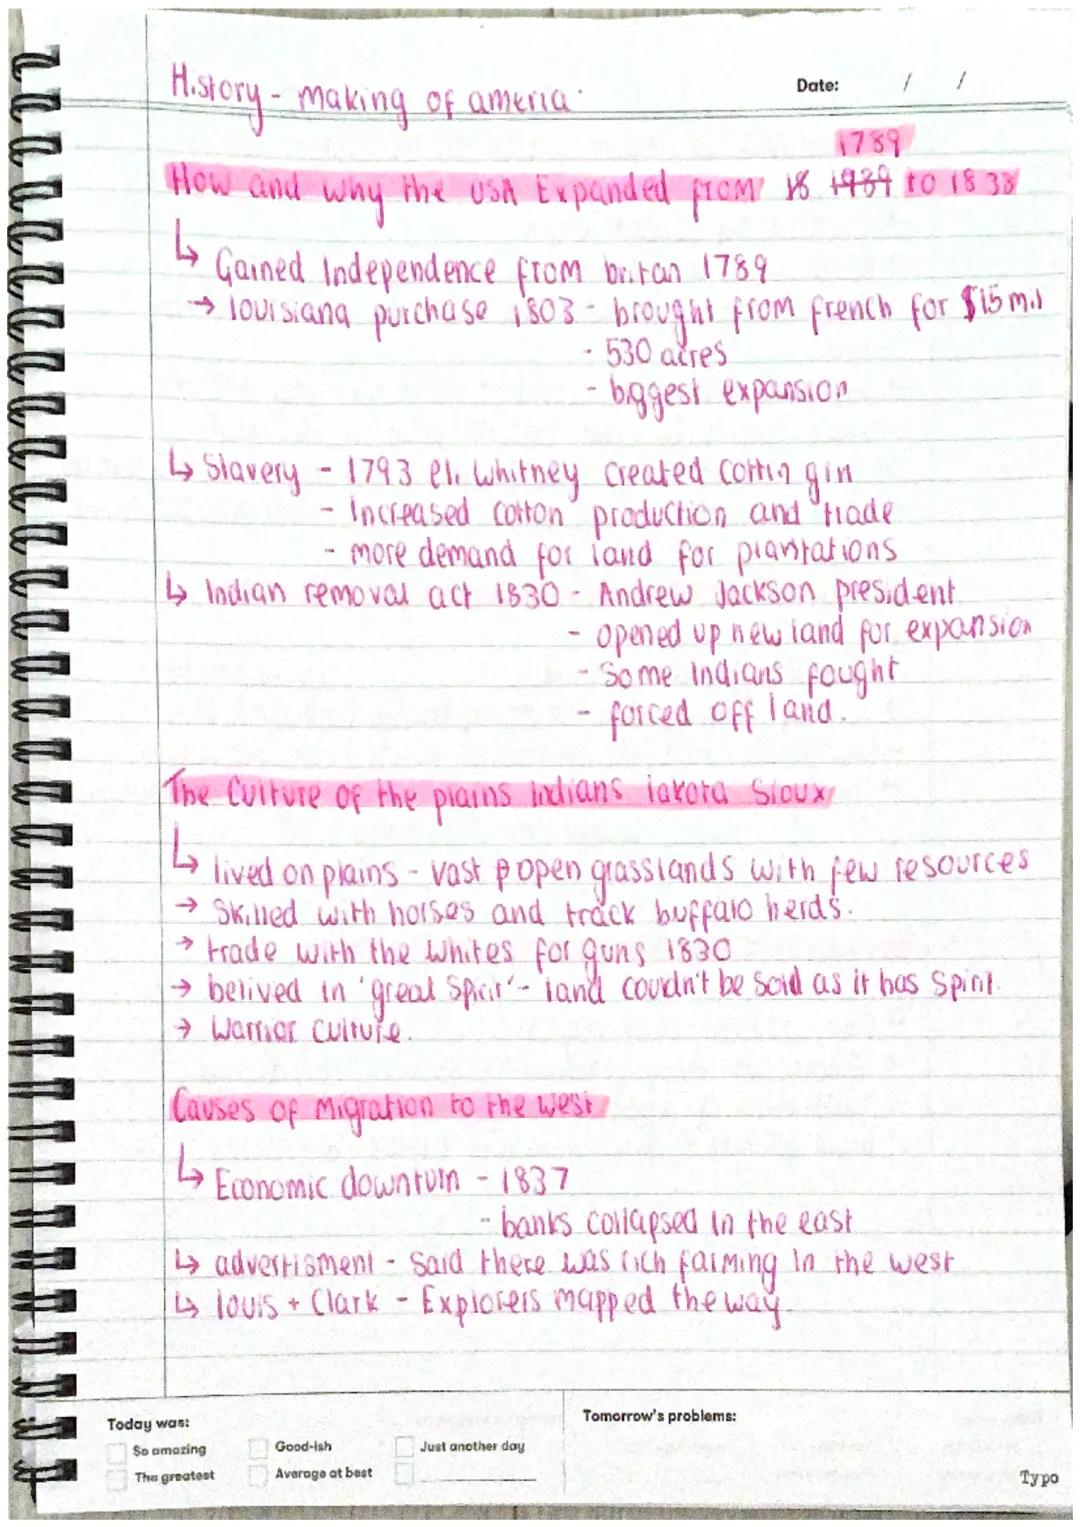 History - making of ameria
Date: / /
1789
How and why the USA Expanded from 18 1939 to 1838
↳ Gained Independence from britan 1789
→ louisiana purchase 1803 - brought from french for $15 mil
- 530 acres
- biggest expansion
↳ Slavery - 1793 eli whitney created cottin gin
- Increased cotton production and trade
- more demand for land for plantations
↳ Indian removal act 1830 - Andrew Jackson president
- opened up new land for expansion
- Some Indians fought
- forced off land.
The Culture of the plains Indians lakota Sioux
↳ lived on plains - vast open grasslands with few resources
→ Skilled with horses and track buffalo herds.
→ trade with the whites for guns 1830
→ belived in 'great Spirit' - land couldn't be sold as it has Spirit.
→ Warrior culture.
Causes of Migration to the west
↳ Economic downturn - 1837
- banks collapsed in the east
↳ advertisment - Said there was rich farming in the west
↳ louis + Clark - Explorers mapped the way.
Today was:
So amazing
Good-ish
Just another day
The greatest
Average at best
Tomorrow's problems:
Typo